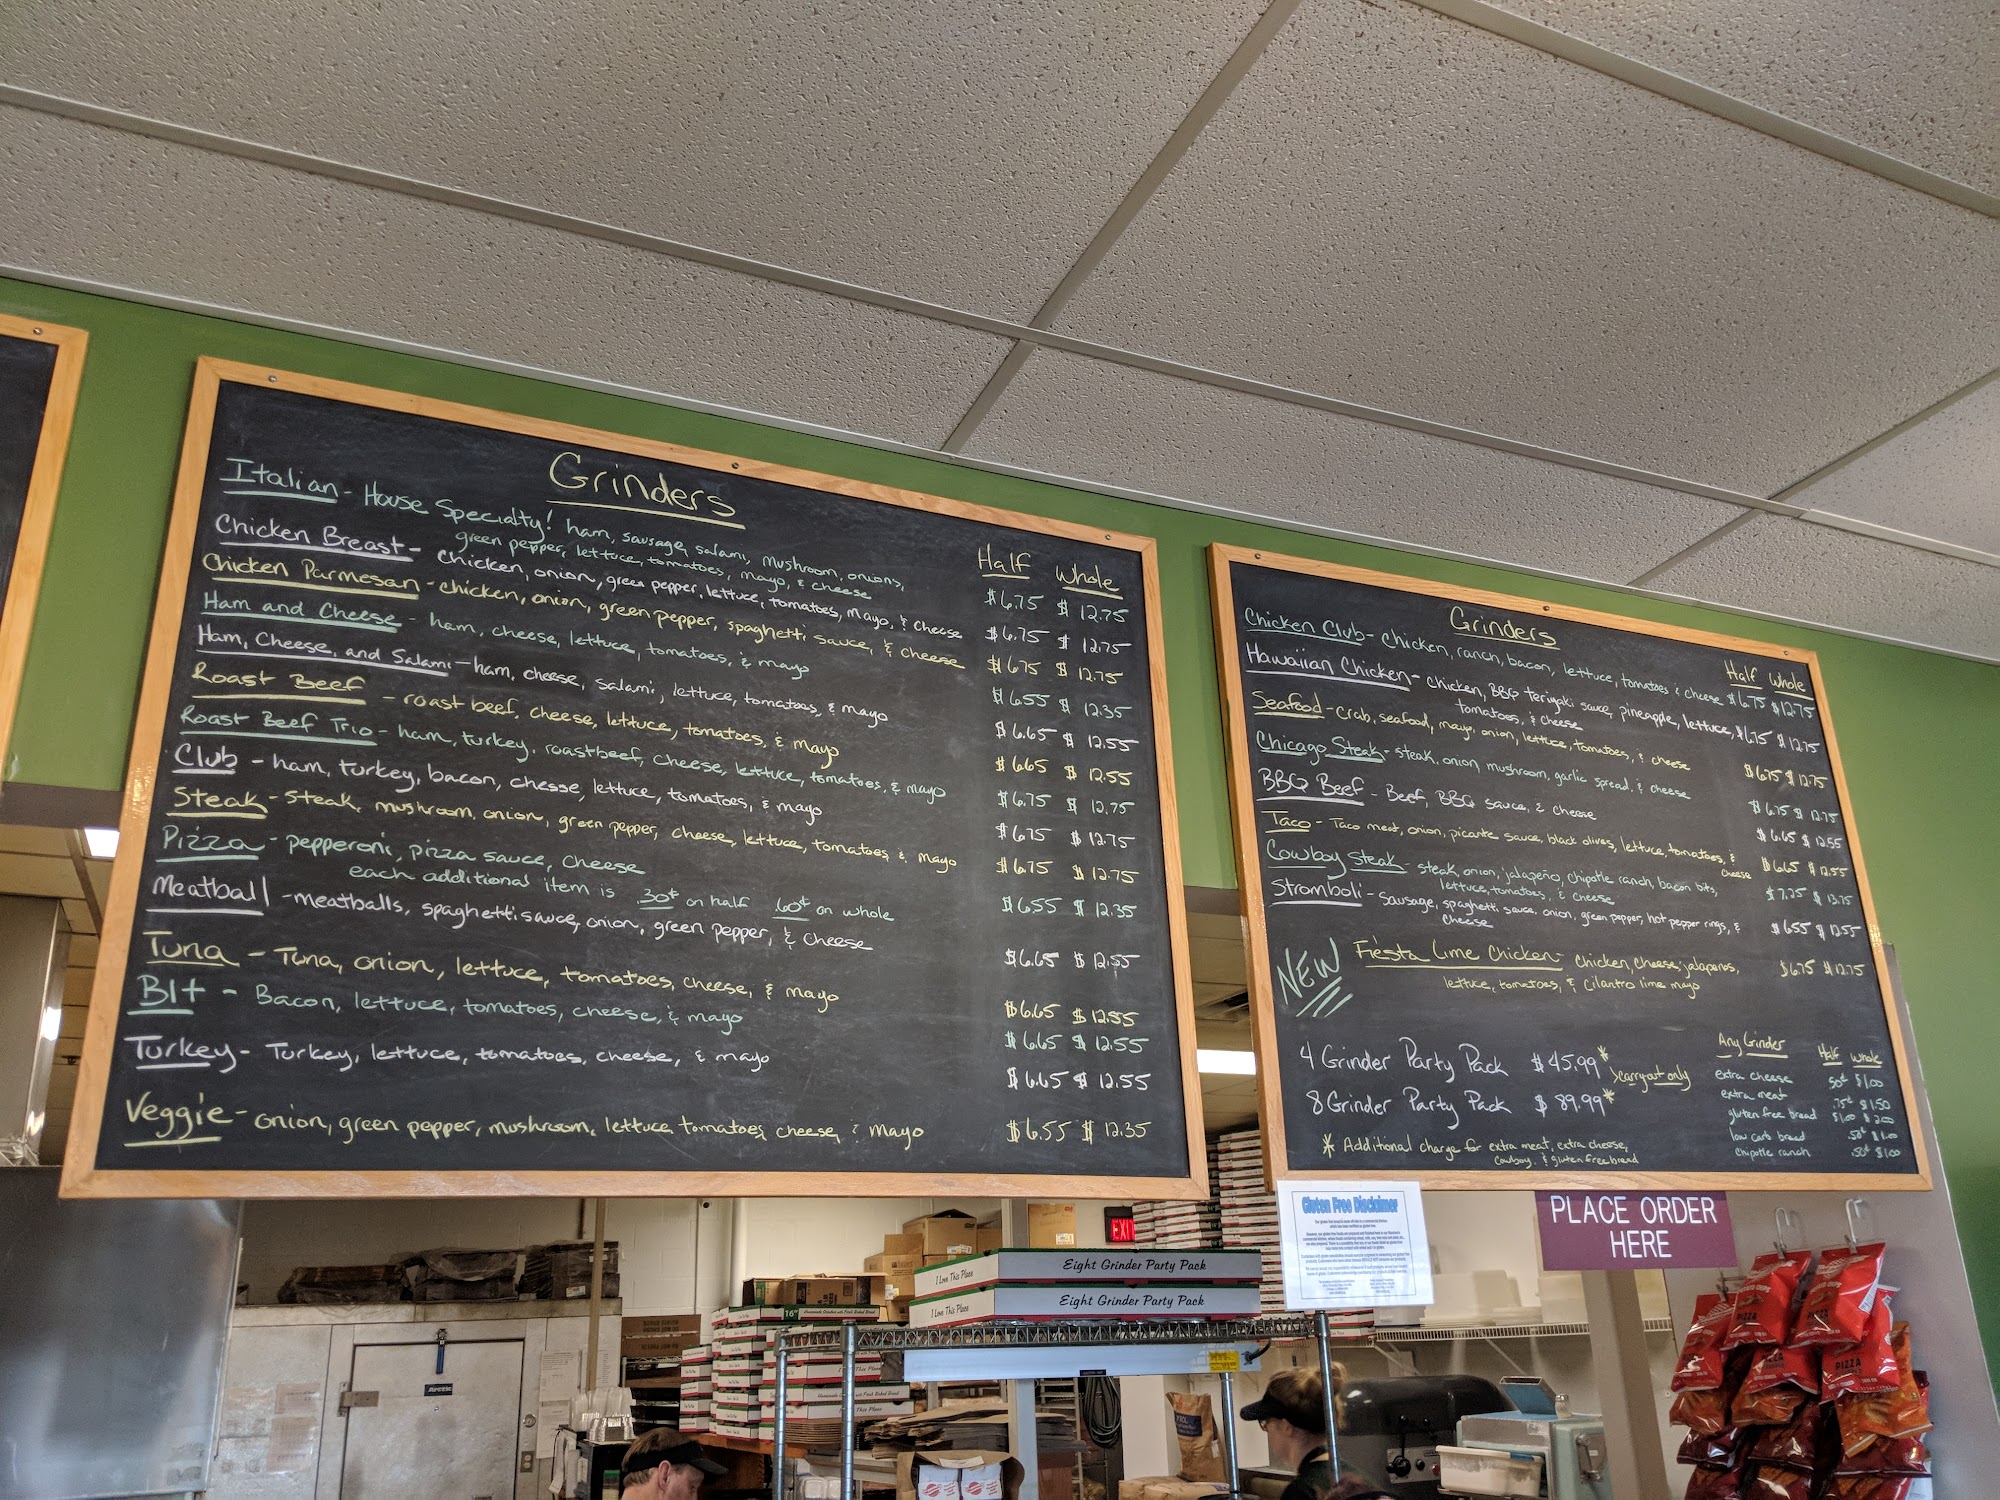 Grinders
Half Whole
Italian - House Specialty! ham, sausage, salami, mushroom, onions,
green pepper, lettuce, tomatoes, mayo, & cheese $6.75 $12.75
Chicken Breast - Chicken, onion, green pepper, lettuce, tomatoes, mayo, & cheese $6.75 $12.75
Chicken Parmesan - chicken, onion, green pepper, spaghetti sauce, & cheese $6.75 $12.75
Ham and Cheese - ham, cheese, lettuce, tomatoes, & mayo $6.55 $12.35
Ham, Cheese, and Salami - ham, cheese, salami, lettuce, tomatoes, & mayo $6.65 $12.55
Roast Beef - roast beef, cheese, lettuce, tomatoes, & mayo $6.65 $12.55
Roast Beef Trio - ham, turkey, roastbeef, cheese, lettuce, tomatoes, & mayo $6.75 $12.75
Club - ham, turkey, bacon, cheese, lettuce, tomatoes, & mayo $6.75 $12.75
Steak - Steak, mushroom, onion, green pepper, cheese, lettuce, tomatoes, & mayo $6.75 $12.75
Pizza - pepperoni, pizza sauce, cheese $6.55 $12.35
each additional item is .30¢ on half .60¢ on whole
Meatball - meatballs, spaghetti sauce, onion, green pepper, & cheese $6.65 $12.55
Tuna - Tuna, onion, lettuce, tomatoes, cheese, & mayo $6.65 $12.55
Blt - Bacon, lettuce, tomatoes, cheese, & mayo $6.65 $12.55
Turkey - Turkey, lettuce, tomatoes, cheese, & mayo $6.65 $12.55
Veggie - onion, green pepper, mushroom, lettuce, tomatoes, cheese, & mayo $6.55 $12.35
Grinders
Half Whole
Chicken Club - Chicken, ranch, bacon, lettuce, tomatoes & cheese $6.75 $12.75
Hawaiian Chicken - Chicken, BBQ teriyaki sauce, pineapple, lettuce, $6.75 $12.75
tomatoes, & cheese
Seafood - Crab, seafood, mayo, onion, lettuce, tomatoes, & cheese $6.75 $12.75
Chicago Steak - steak, onion, mushroom, garlic spread, & cheese $6.75 $12.75
BBQ Beef - Beef, BBQ sauce, & cheese $6.65 $12.55
Taco - Taco meat, onion, picante sauce, black olives, lettuce, tomatoes, & $6.65 $12.55
cheese
Cowboy Steak - steak, onion, jalapeño, chipotle ranch, bacon bits, $7.25 $13.75
lettuce, tomatoes, & cheese
Stromboli - Sausage, spaghetti sauce, onion, green pepper, hot pepper rings, & $6.55 $12.55
cheese
NEW Fiesta Lime Chicken - Chicken, cheese, jalapenos, $6.75 $12.75
lettuce, tomatoes, & Cilantro lime mayo
4 Grinder Party Pack $45.99*
8 Grinder Party Pack $89.99*
>carry-out only
* Additional charge for extra meat, extra cheese,
cowboy, & gluten free bread
Any Grinder Half Whole
extra cheese .50¢ $1.00
extra meat .75¢ $1.50
gluten free bread $1.00 $2.00
low carb bread .50¢ $1.00
Chipotle ranch .50¢ $1.00
Gluten Free Disclaimer
PLACE ORDER
HERE
EXIT
I Love This Place Eight Grinder Party Pack
I Love This Place Eight Grinder Party Pack
16"
Arctic
PIZZA
PIZZA
PIZZA